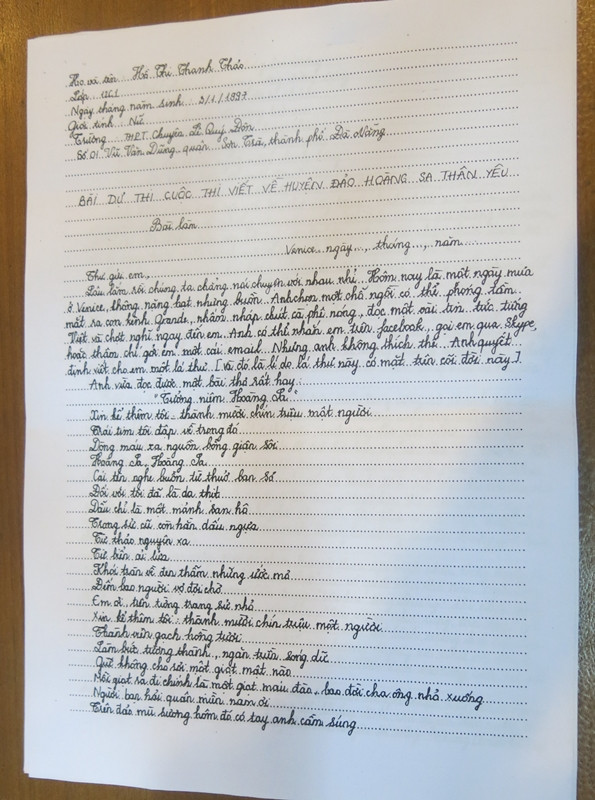 Họ và tên : Hồ Thị Thanh Thảo
Lớp 12C1
Ngày tháng năm sinh : 3/1/1997
Giới tính : Nữ
Trường THPT Chuyên Lê Quý Đôn
Số 01 Vũ Văn Dũng, quận Sơn Trà, thành phố Đà Nẵng
BÀI DỰ THI CUỘC THI VIẾT VỀ HUYỆN ĐẢO HOÀNG SA THÂN YÊU
Bài làm
Venice ngày..., tháng..., năm
Thư gửi em,
Lâu lắm rồi chúng ta chẳng nói chuyện với nhau nhỉ. Hôm nay là một ngày mưa
ở Venice, không nặng hạt nhưng buồn. Anh chọn một chỗ ngồi có thể phóng tầm
mắt ra con kênh Grande, nhâm nháp chút cà phê nóng, đọc một vài tin tức tiếng
Việt và chợt nghĩ ngay đến em. Anh có thể nhắn em trên facebook, gọi em qua Skype,
hoặc thậm chí gởi em một cái email. Nhưng anh không thích thế. Anh quyết
định viết cho em một lá thư. [Và đó là lí do lá thư này có mặt trên cõi đời này].
Anh vừa đọc được một bài thơ rất hay :
"Tưởng niệm Hoàng Sa"
Xin kể thêm tôi - thành mười chín triệu một người
Trái tim tôi đập về trong đó
Dòng máu xa nguồn bỗng giận sôi
Hoàng Sa, Hoàng Sa
Cái tên nghe buồn từ thuở ban sơ
Đối với tôi đã là da thịt
Dẫu chỉ là một mảnh san hô
Trong sử cũ còn hằn dấu ngựa
Từ thảo nguyên xa
Từ biển ải lửa
Khói trăn về đen thẫm những ước mơ
Đến bao người vợ đợi chờ
Em ơi, trên từng trang sử nhỏ
Xin kể thêm tôi : thành mười chín triệu một người
Thành viên gạch hồng tươi
Làm bức tường thành, ngăn trăm sóng dữ
Quê không cho rơi một giọt mật nào
Mỗi giọt rơi đi chính là một giọt máu đào, bao đời cha ông nhỏ xuống
Người bạn hải quân miền nam ơi
Trên đảo mù sương hôm đó có tay anh cầm súng